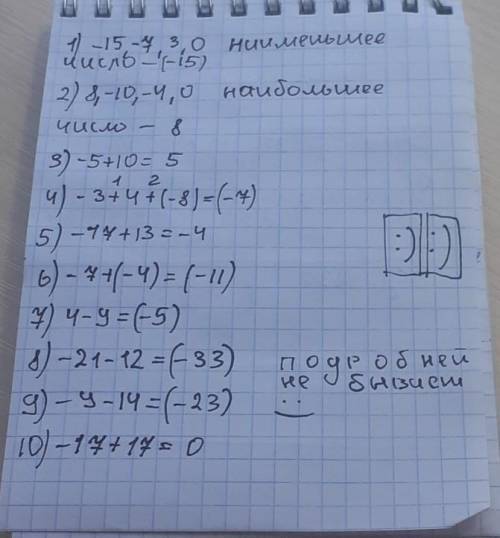 1) -15, -7, 3, 0 наименьшее
число - (-15)
2) 8, -10, -4, 0 наибольшее
число - 8
3) -5+10= 5
1 2
4) -3+4+(-8)=(-7)
5) -17+13=-4
6) -7+(-4)=(-11)
7) 4-9=(-5)
8) -21-12=(-33)
9) -9-14=(-23)
10) -17+17= 0
:) :)
подробней
не бывает